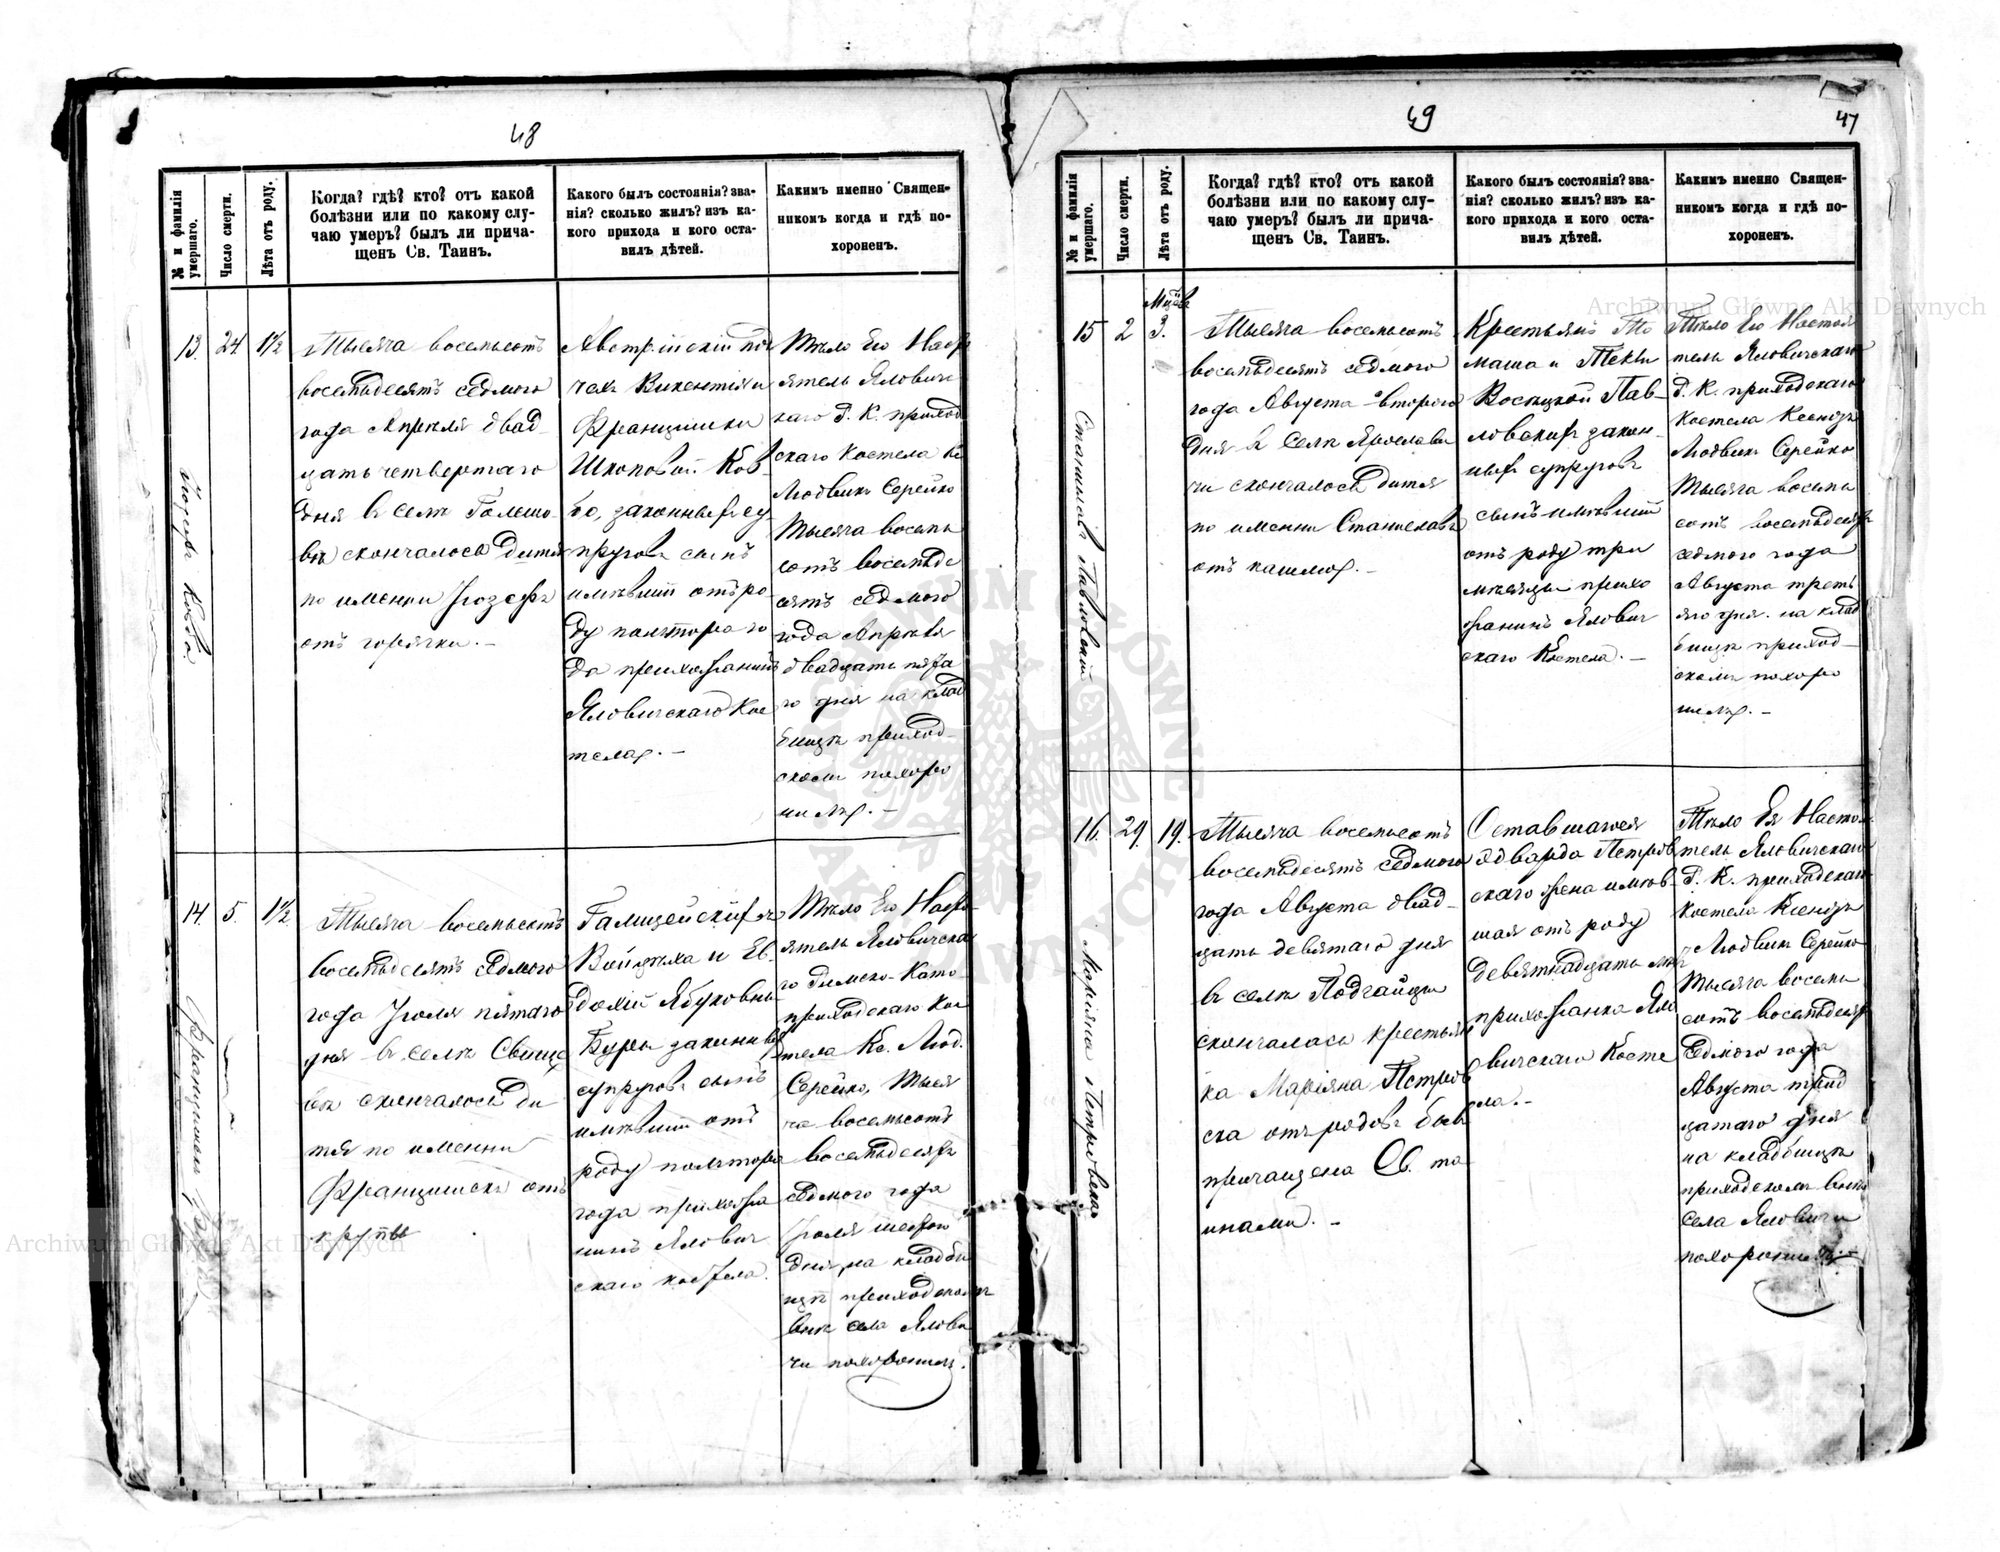 48
№ и фамилія умершаго.
Число смерти.
Лѣта отъ роду.
Когда? гдѣ? кто? отъ какой
болѣзни или по какому слу-
чаю умеръ? былъ ли прича-
щенъ Св. Таинъ.
Какого былъ состоянія? зва-
нія? сколько жилъ? изъ ка-
кого прихода и кого оста-
вилъ дѣтей.
Какимъ именно Священ-
никомъ когда и гдѣ по-
хороненъ.
13.
24.
1½
Тысяча восемьсотъ
восемьдесятъ седмого
года Апрѣля двад-
цать четвертаго
дня въ селѣ
скончалось дитя
по имени Іозефъ
отъ горячки. –
Викентія и
Францишки
законныхъ су-
пруговъ сынъ
имѣвшій отъ ро-
ду полтора го
да прихожанинъ
Яловичскаго Кос
тела. –
Тѣло Его Наст
оятель Яловичс
каго Р. К. приход
скаго Костела Кс
Людвикъ Серейко
Тысяча восемь
сотъ восемьде
сятъ седмого
года Апрѣля
двадцать пята
го дня на клад
бищѣ приход-
скомъ похоро
нилъ. –
14.
5.
1½
Тысяча восемьсотъ
восемьдесятъ седмого
года Іюля пятаго
дня въ селѣ
скончалось ди
тя по имени
Францишекъ отъ
крупы
Войцѣха и
законныхъ
супруговъ сынъ
имѣвшій отъ
роду полтора
года прихожа
нинъ Ялович
скаго костела.
Тѣло Его Насто
ятель Яловичска
го Римско-Като
приходскаго Кос
тела Кс. Люд.
Серейко, Тыся
ча восемьсотъ
восемьдесятъ
седмого года
Іюля шестого
дня, на кладби
щѣ приходскомъ
внѣ села Ялови
чи похоронилъ.
49
47
№ и фамилія умершаго.
Число смерти.
Лѣта отъ роду.
Когда? гдѣ? кто? отъ какой
болѣзни или по какому слу-
чаю умеръ? былъ ли прича-
щенъ Св. Таинъ.
Какого былъ состоянія? зва-
нія? сколько жилъ? изъ ка-
кого прихода и кого оста-
вилъ дѣтей.
Какимъ именно Священ-
никомъ когда и гдѣ по-
хороненъ.
15
2
3.
Станиславъ Павловскій
Тысяча восемьсотъ
восемьдесятъ седмого
года Августа второго
дня въ селѣ Ярослави
чи скончалось дитя
по имени Станиславъ
отъ кашлю. –
Крестьянъ То
маша и Текли
Павловскихъ закон-
ныхъ супруговъ
сынъ имѣвшій
отъ роду три
мѣсяцы прихо
жанинъ Ялович
скаго Костела. –
Тѣло Его Настоя
тель Яловичскаго
Р. К. приходскаго
Костела Ксендзъ
Людвикъ Серейко
Тысяча восемь
сотъ восемьдесятъ
седмого года
Августа треть
яго дня на клад
бищѣ приход-
скомъ похоро
нилъ. –
16.
29.
19.
Маріяна Петровска
Тысяча восемьсотъ
восемьдесятъ седмого
года Августа двад-
цать девятаго дня
въ селѣ Подгайцы
скончалась крестьян
ка Маріяна Петров
ска отъ родовъ бывъ
причащена Св. та
инами. –
Оставшаяся
Эдварда Петров
скаго жена имѣв-
шая отъ роду
девятнадцать лѣтъ
прихожанка Яло
вичскаго Косте
ла. –
Тѣло Ея Настоя
тель Яловичскаго
Р. К. приходскаго
Костела Ксендзъ
Людвикъ Серейко
Тысяча восемь
сотъ восемьдесятъ
седмого года
Августа трид
цатаго дня
на кладбищѣ
приходскомъ внѣ
села Яловичи
похоронилъ. –
Archiwum Główne Akt Dawnych
Archiwum Główne Akt Dawnych
ARCHIWUM GŁÓWNE AKT DAWNYCH